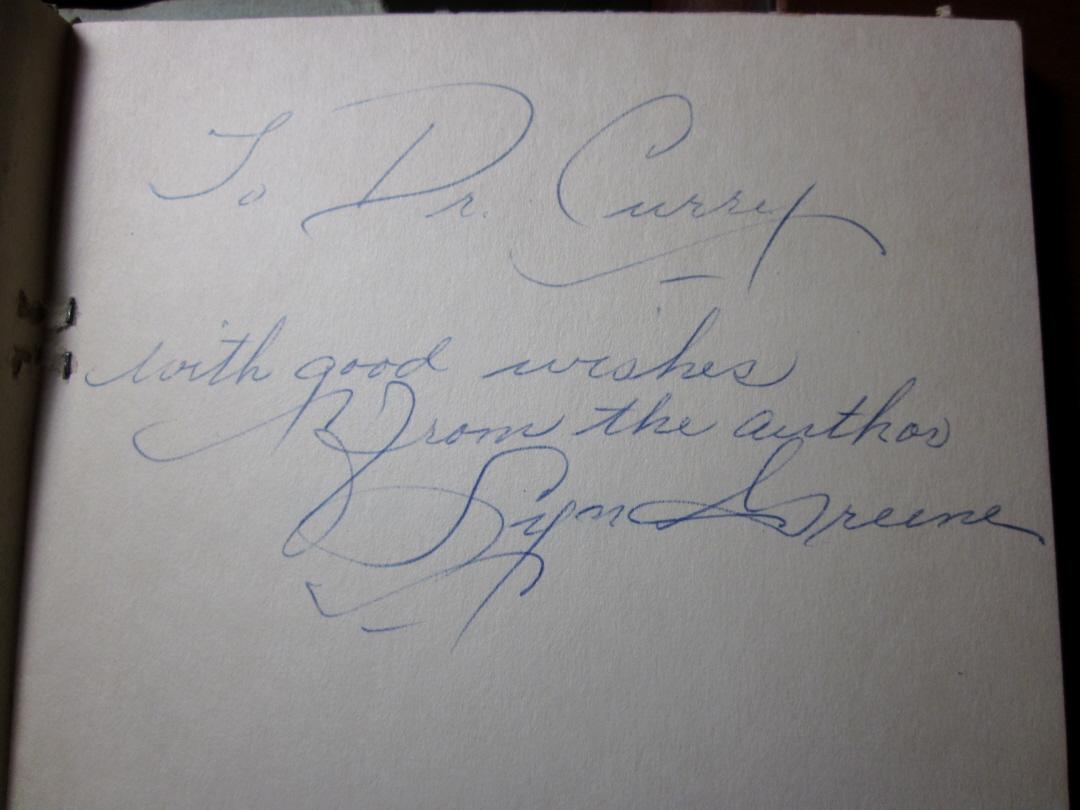 To Dr. Curry
with good wishes
From the author
Lyn Greene